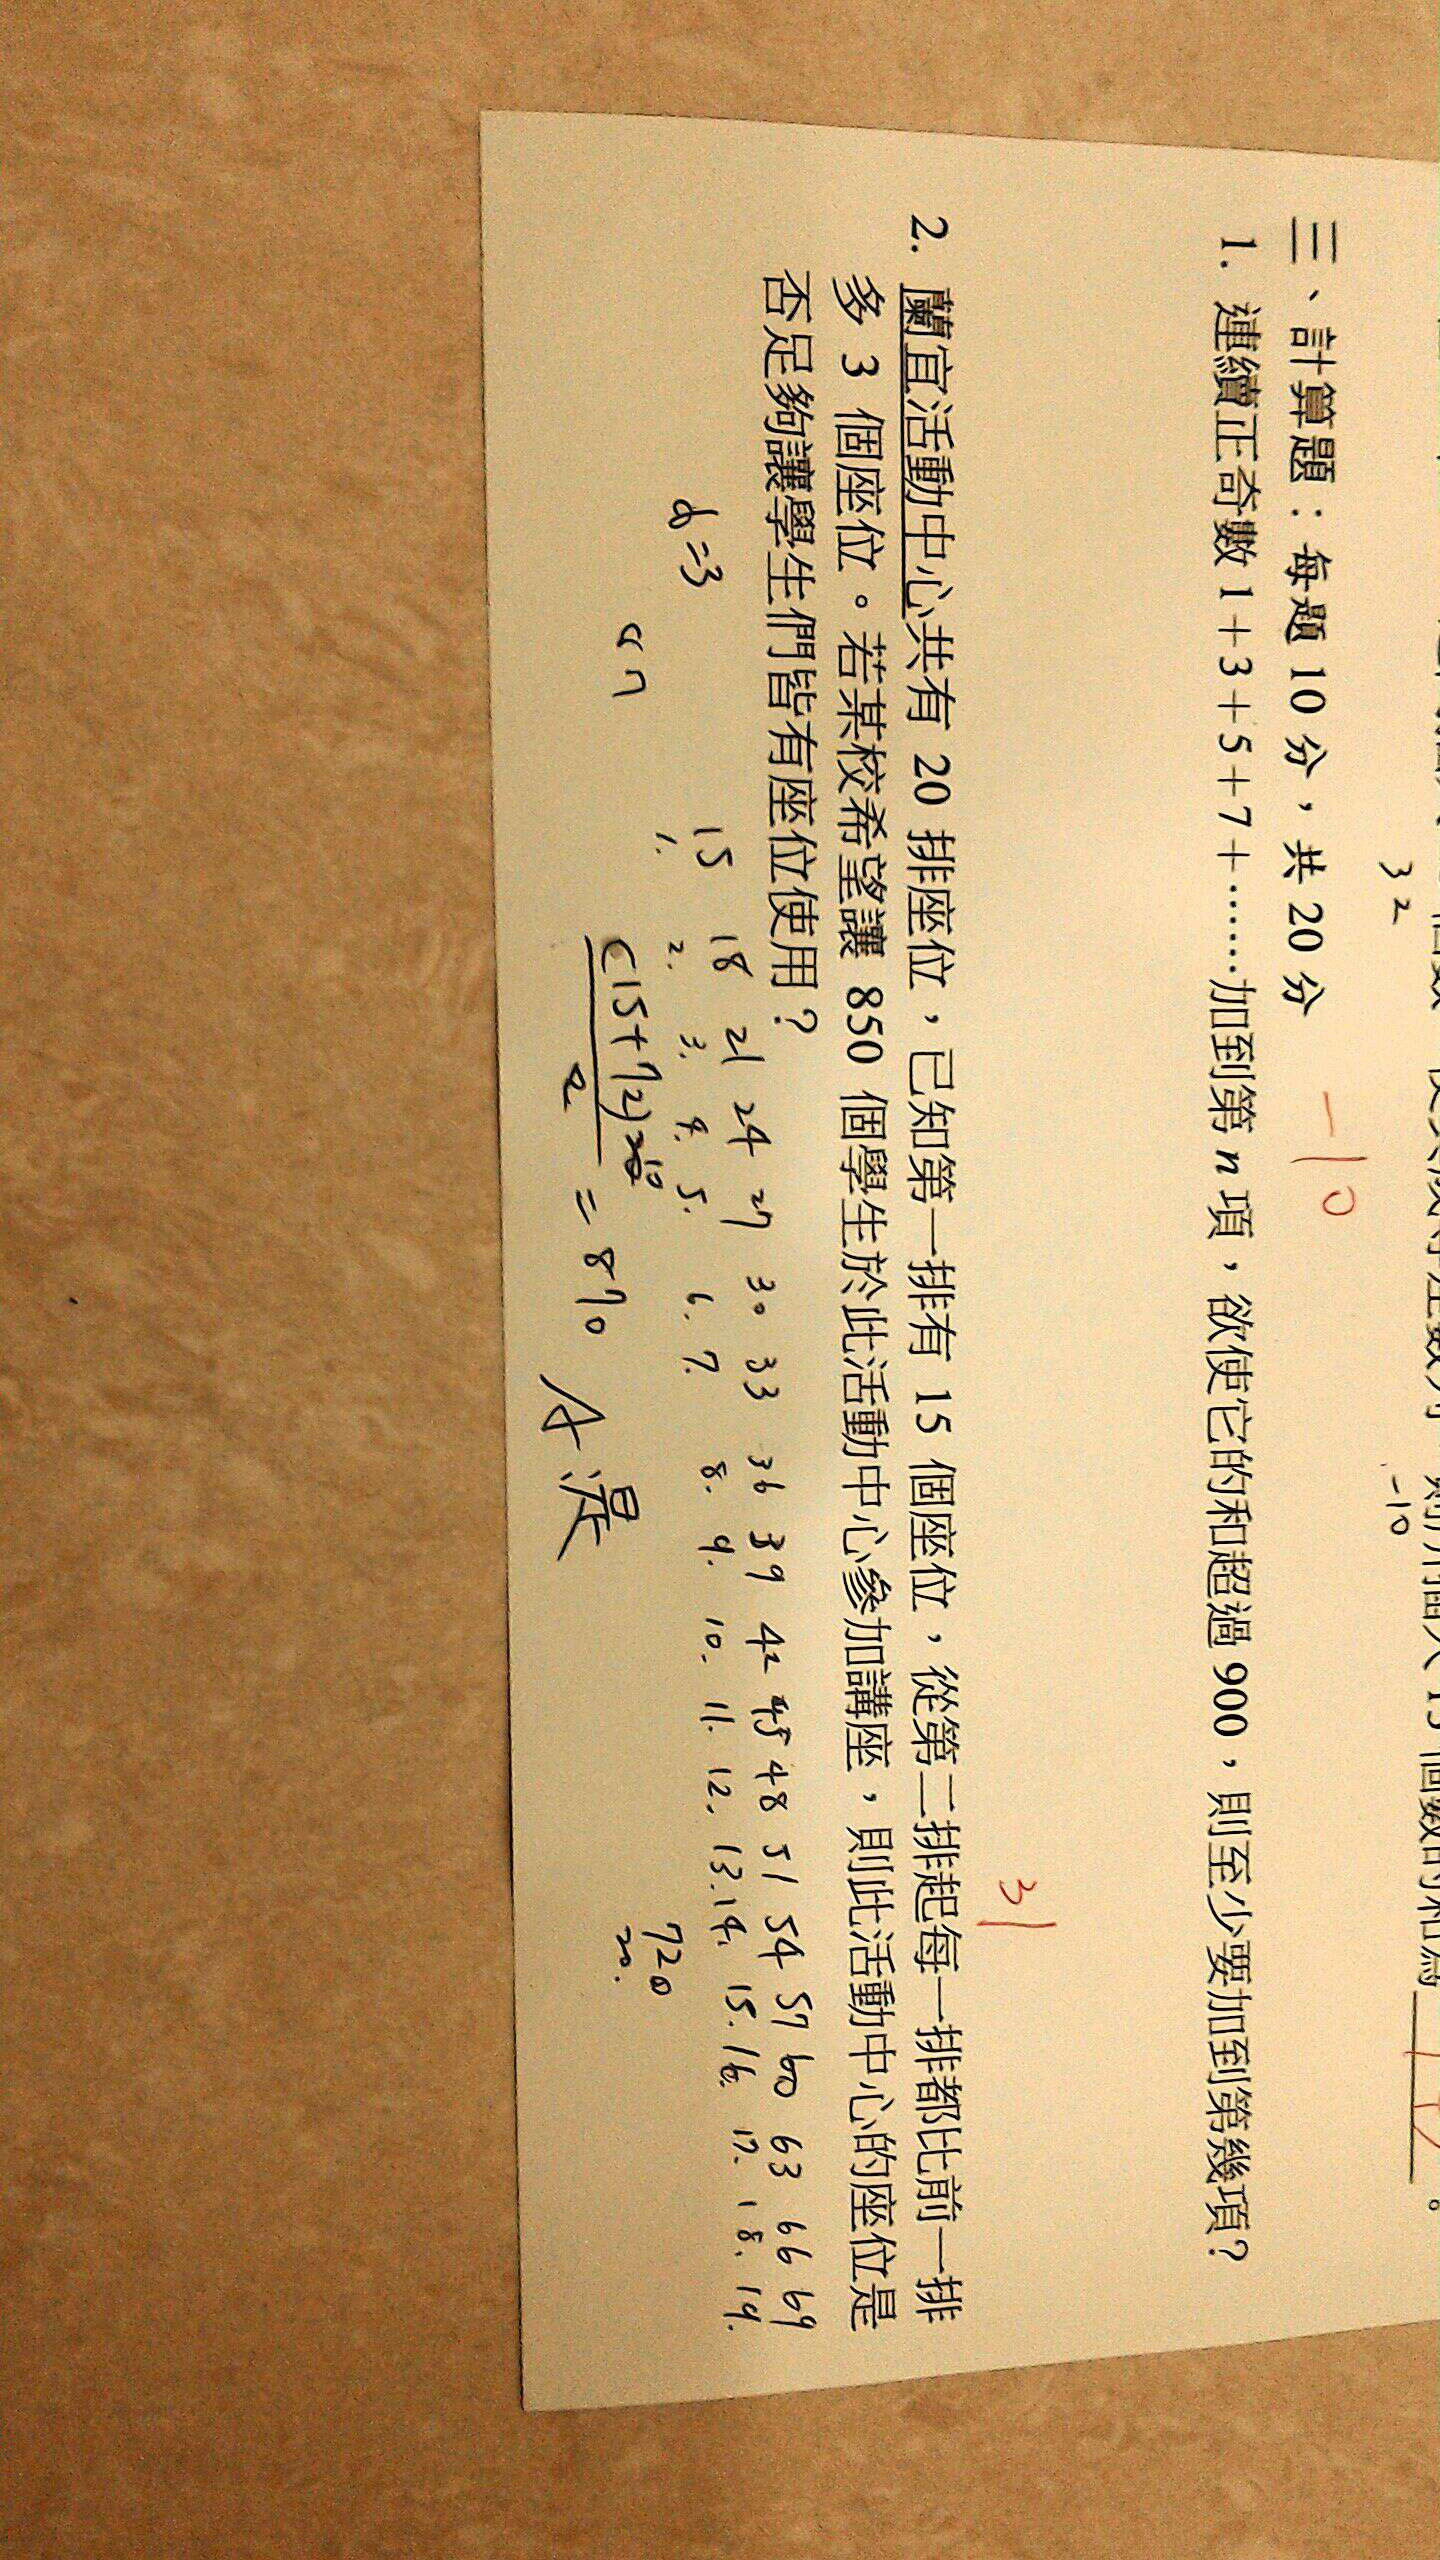 32
-10
三、計算題：每題 10 分，共 20 分 -10
1. 連續正奇數 1+3+5+7+……加到第 n 項，欲使它的和超過 900，則至少要加到第幾項？
31
2. 蘭宜活動中心共有 20 排座位，已知第一排有 15 個座位，從第二排起每一排都比前一排
多 3 個座位。若某校希望讓 850 個學生於此活動中心參加講座，則此活動中心的座位是
否足夠讓學生們皆有座位使用？
15 18 21 24 27 30 33 36 39 42 45 48 51 54 57 60 63 66 69
1. 2. 3. 4. 5. 6. 7. 8. 9. 10. 11. 12. 13. 14. 15. 16. 17. 18. 19.
d=3
an
720
20.
(15+72)20 10
2
= 870
A 是